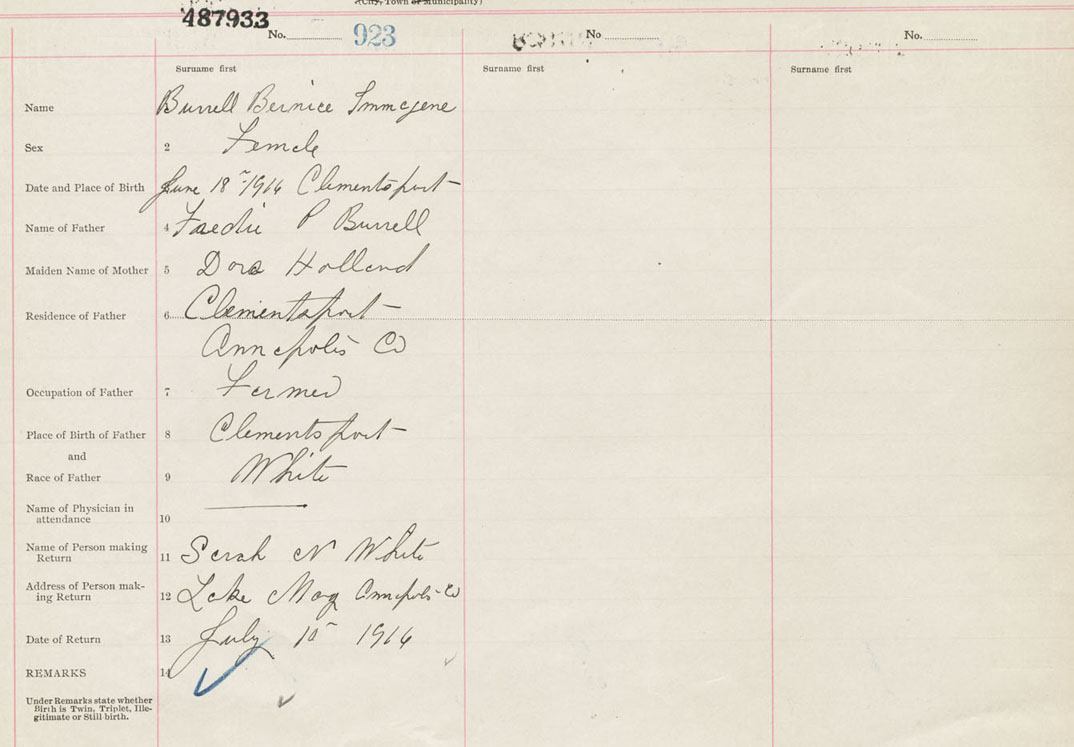 (City, Town or Municipality)
487933
No. 923 No No.
Surname first Surname first Surname first
Name Burrell Bernice Immogene
Sex 2 Female
Date and Place of Birth June 18 1916 Clementsport
Name of Father 4 Freddie P Burrell
Maiden Name of Mother 5 Dora Holland
Residence of Father 6 Clementsport
Annapolis Co
Occupation of Father 7 Farmer
Place of Birth of Father 8 Clementsport
and
Race of Father 9 White
Name of Physician in
attendance 10
Name of Person making
Return 11 Sarah N White
Address of Person mak-
ing Return 12 Lake May Annapolis Co
Date of Return 13 July 10 1916
REMARKS 14
Under Remarks state whether
Birth is Twin, Triplet, Ille-
gitimate or Still birth.